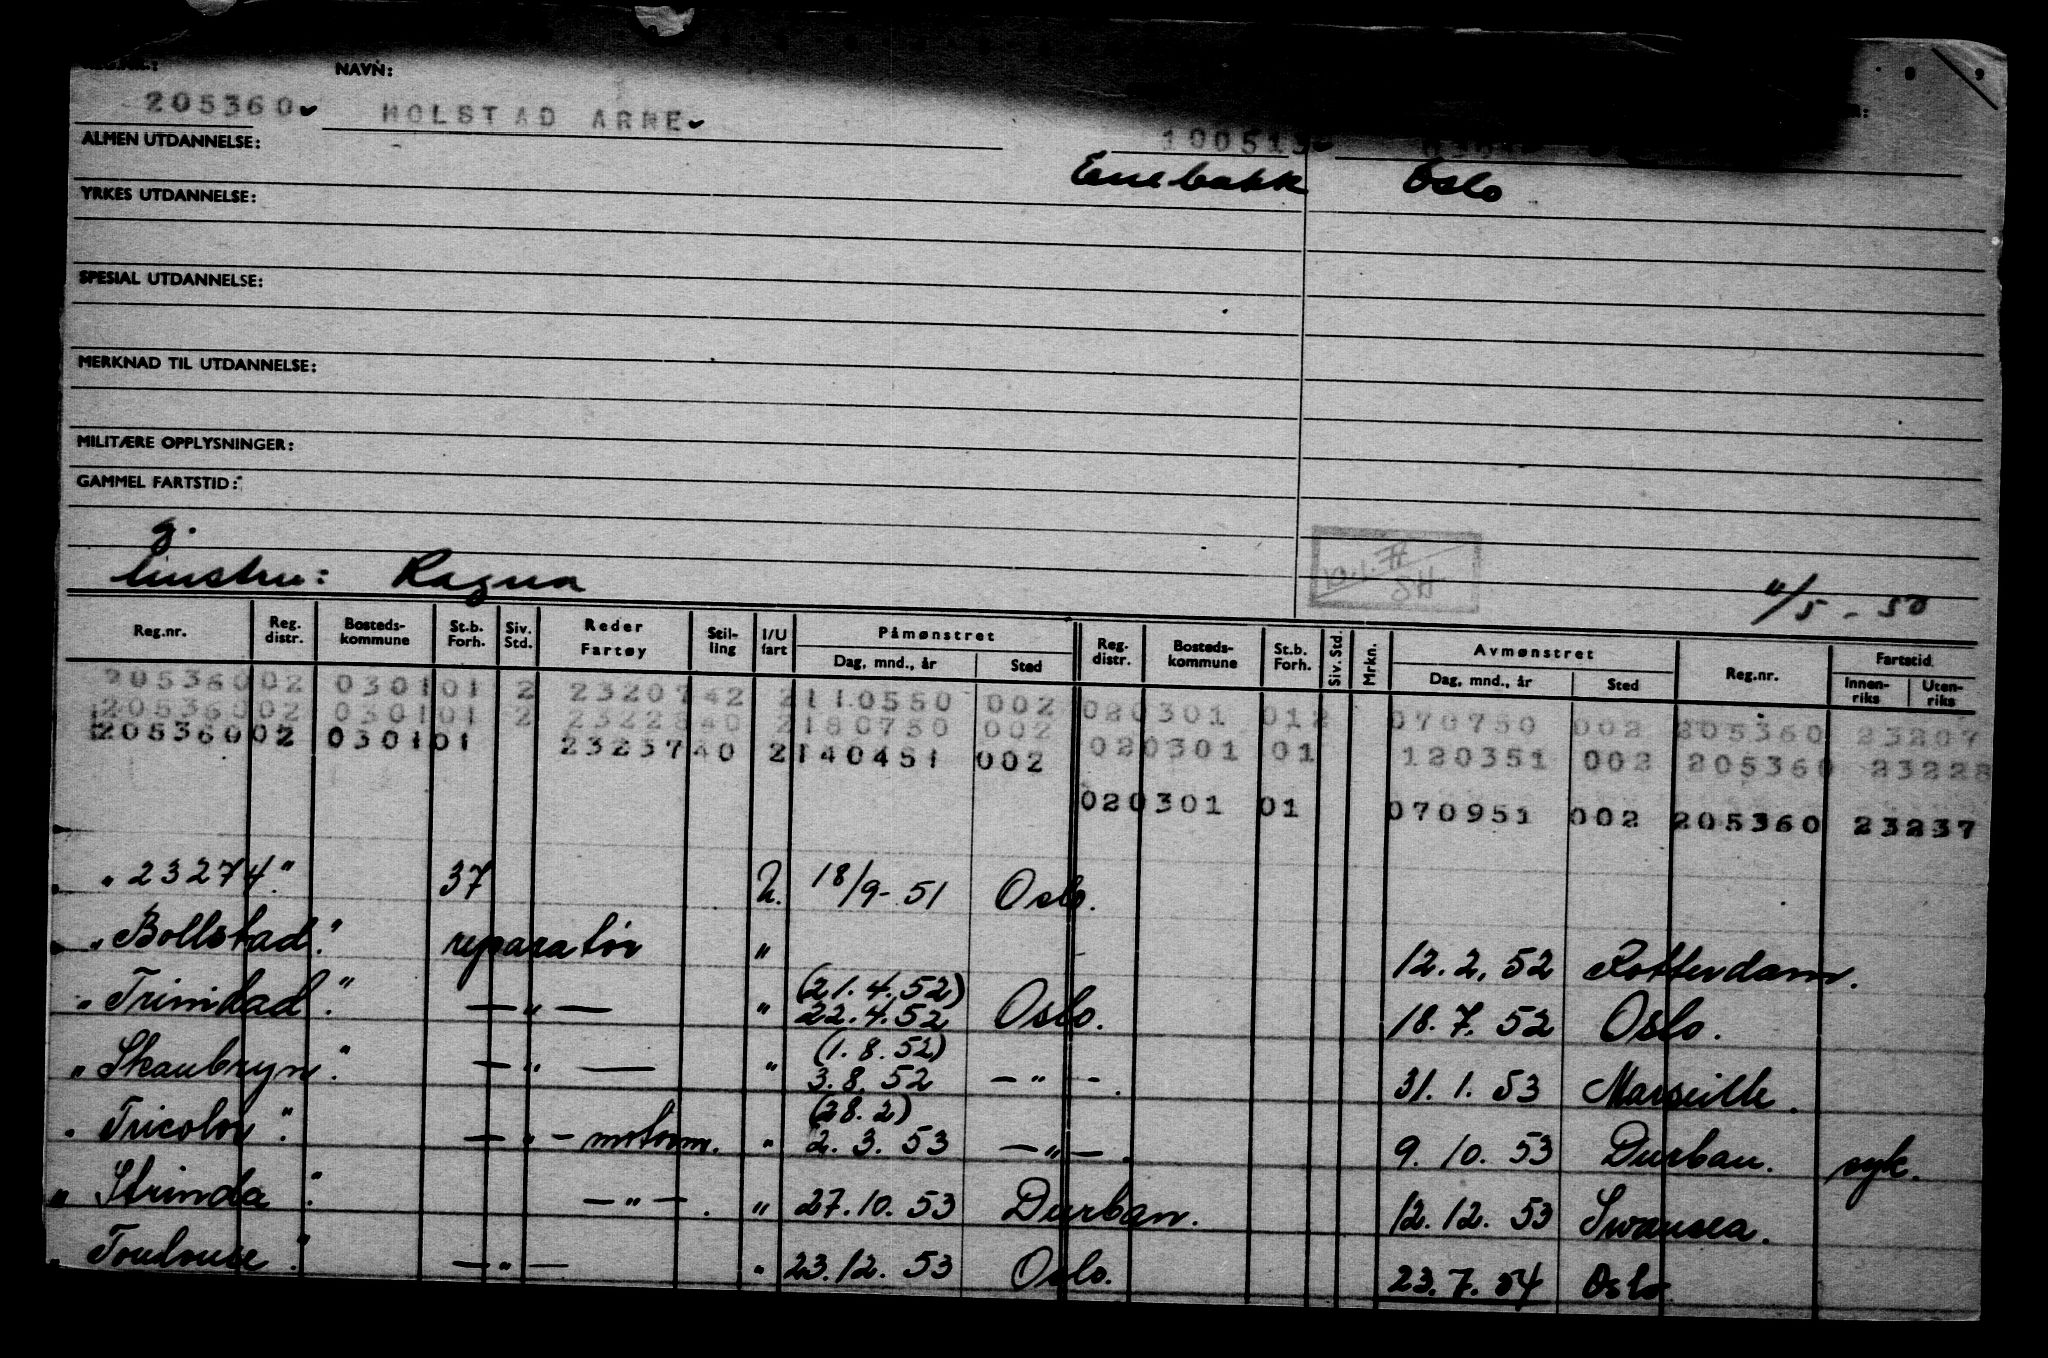 NAVN:
205360 HOLSTAD ARNE
ALMEN UTDANNELSE: 190513
Enebakk Oslo
YRKES UTDANNELSE:
SPESIAL UTDANNELSE:
MERKNAD TIL UTDANNELSE:
MILITÆRE OPPLYSNINGER:
GAMMEL FARTSTID:
g.
hustru: Ragna 11/5 - 50
Reg.nr. Reg. distr. Bosteds-kommune St.b. Forh. Siv. Std. Reder Fartøy Stil-ling I/U fart Påmønstret Dag, mnd., år Sted Reg. distr. Bosteds-kommune St.b. Forh. Siv. Std. Mrkn. Avmønstret Dag, mnd., år Sted Reg.nr. Fartstid Innen-riks Uten-riks
205360 02 0301 01 2 23207 42 2 110550 002 02 0301 012 070750 002 205360 23207
205360 02 0301 01 2 23228 40 2 180750 002 02 0301 01 120351 002 205360 23228
205360 02 0301 01 23237 40 2 140451 002 02 0301 01 070951 002 205360 23237
"23274." 37 2. 18/9-51 Oslo.
"Bollstad." reparatør " 12.2.52 Rotterdam.
"Trinidad." — " — " (21.4.52) 22.4.52 Oslo. 18.7.52 Oslo.
"Skaubryn." — " — " (1.8.52) 3.8.52 — " —. 31.1.53 Marseille.
"Tricolor". — " — motorm. " (28.2) 2.3.53 — " —. 9.10.53 Durban. syk.
"Strinda". — " —. " 27.10.53 Durban. 12.12.53 Swansea.
"Toulouse". — " — " 23.12.53 Oslo. 23.7.54 Oslo